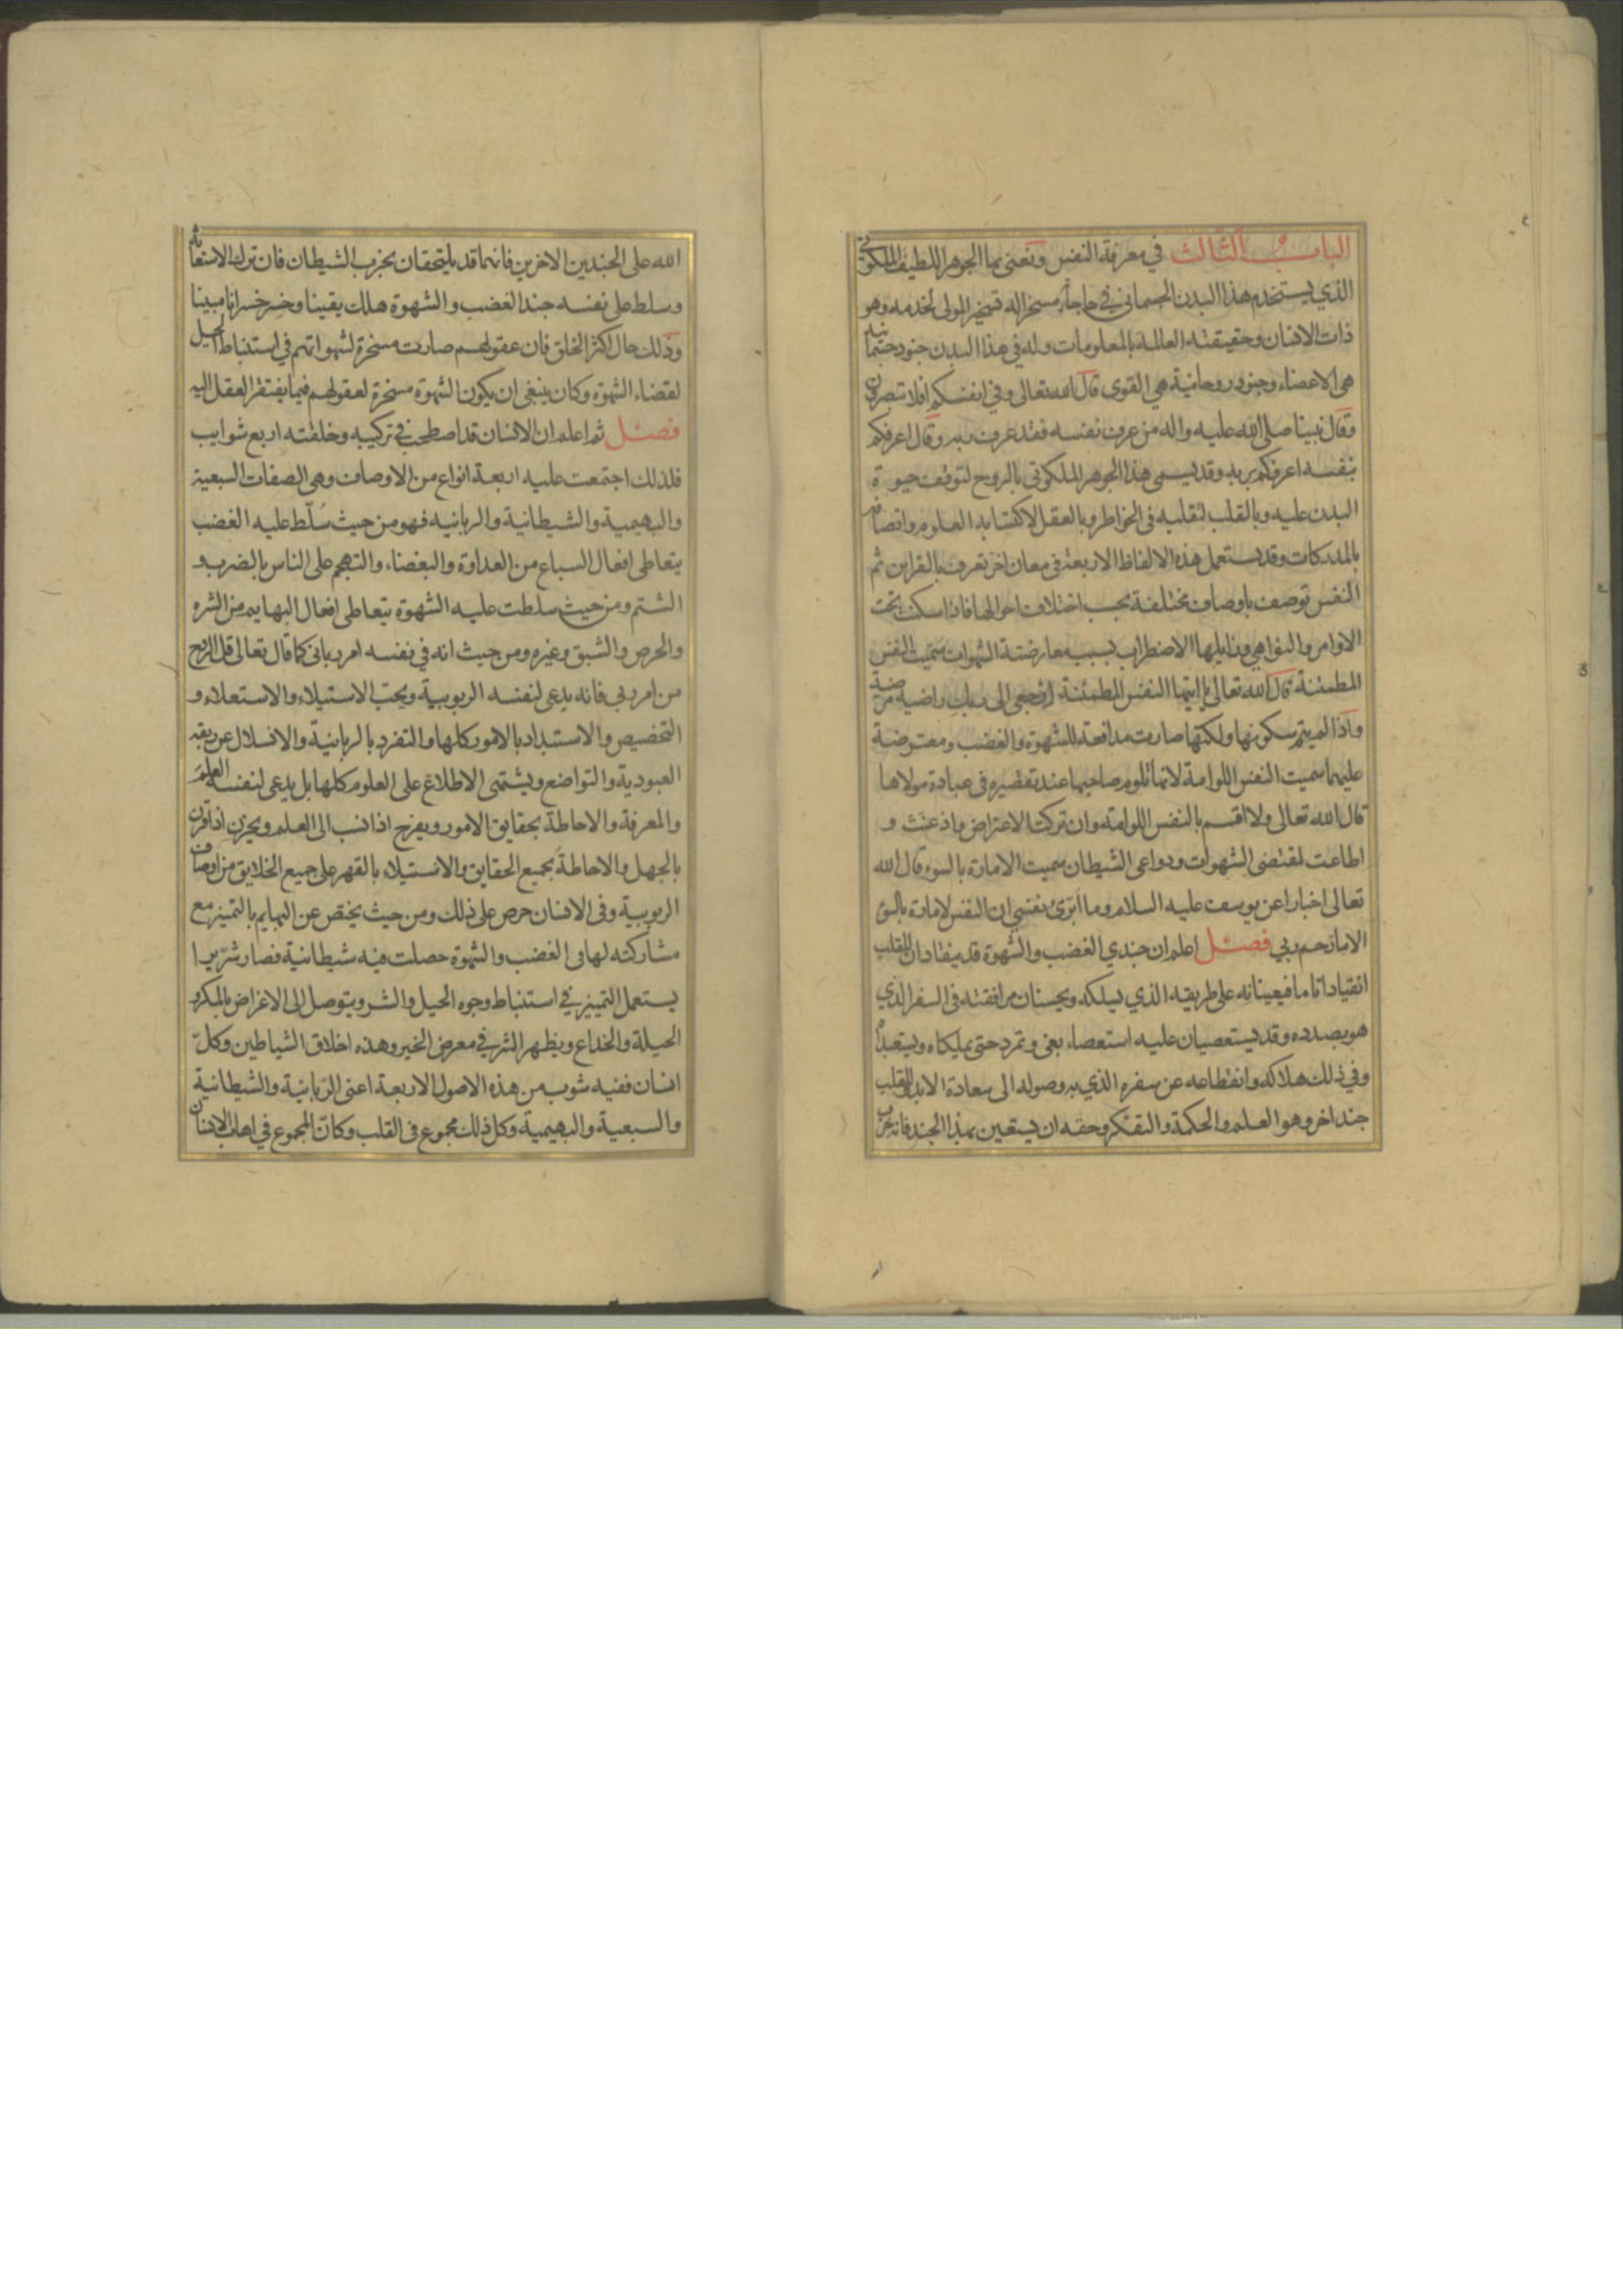 الباب الثالث في معرفة النفس ونعني بها الجوهر اللطيف الملكوتي
الذي يستخدم هذا البدن الجسماني في حاجاته مسخرا له تسخير المولى لخدمه وهو
ذات الانسان وحقيقته العالمة بالمعلومات وله في هذا البدن جنود جسمانية
هي الاعضاء وجنود روحانية هي القوى قال الله تعالى وفي انفسكم افلا تبصرون
وقال نبينا صلى الله عليه واله من عرف نفسه فقد عرف ربه وقال اعرفكم
بنفسه اعرفكم بربه وقد يسمى هذا الجوهر الملكوتي بالروح لتوقف حيوة
البدن عليه وبالقلب لتقلبه في الخواطر وبالعقل لاكتسابه العلوم واتصافه
بالمدركات وقد يستعمل هذه الالفاظ الاربعة في معان اخر تعرف بالقراين ثم
النفس توصف باوصاف مختلفة بحسب اختلاف احوالها فاذا سكنت تحت
الاوامر والنواهي وزايلها الاضطراب بسبب معارضة الشهوات سميت النفس
المطمئنة قال الله تعالى يا ايتها النفس المطمئنة ارجعي الى ربك راضية مرضية
واذا لم يتم سكونها ولكنها صارت مدافعة للشهوة والغضب ومعترضة
عليهما سميت النفس اللوامة لانها تلوم صاحبها عند تقصيره في عبادة مولاها
قال الله تعالى ولا اقسم بالنفس اللوامة وان تركت الاعتراض واذعنت و
اطاعت لمقتضى الشهوات ودواعي الشيطان سميت الامارة بالسوء قال الله
تعالى اخبارا عن يوسف عليه السلام وما ابرئ نفسي ان النفس لامارة بالسوء
الا ما رحم ربي فصل اعلم ان جندي الغضب والشهوة قد ينقادان للقلب
انقيادا تاما فيعينانه على طريقه الذي يسلكه ويحسنان مرافقته في السفر الذي
هو بصدده وقد يستعصيان عليه استعصاء بغي وتمرد حتى يملكاه ويستعبداه
وفي ذلك هلاكه وانقطاعه عن سفره الذي به وصوله الى سعادة الابد وللقلب
جند اخر وهو العلم والحكمة والتفكر وحقه ان يستعين بهذا الجند فانه حزب
الله على الجندين الاخرين فانهما قد يلتحقان بحزب الشيطان فان ترك الاستعانة
وسلط على نفسه جند الغضب والشهوة هلك يقينا وخسر خسرانا مبينا
وذلك حال اكثر الخلق فان عقولهم صارت مسخرة لشهواتهم في استنباط الحيل
لقضاء الشهوة وكان ينبغي ان يكون الشهوة مسخرة لعقولهم فيما يفتقر العقل اليه
فصل ثم اعلم ان الانسان قد اصطحب في تركيبه وخلقته اربع شوايب
فلذلك اجتمعت عليه اربعة انواع من الاوصاف وهي الصفات السبعية
والبهيمية والشيطانية والربانية فهو من حيث سلط عليه الغضب
يتعاطى افعال السباع من العداوة والبغضاء والتهجم على الناس بالضرب و
الشتم ومن حيث سلطت عليه الشهوة يتعاطى افعال البهايم من الشره
والحرص والشبق وغيره ومن حيث انه في نفسه امر رباني كما قال تعالى قل الروح
من امر ربي فانه يدعي لنفسه الربوبية ويحب الاستيلاء والاستعلاء و
التخصيص والاستبداد بالامور كلها والتفرد بالربانية والانسلال عن ربقة
العبودية والتواضع ويشتهي الاطلاع على العلوم كلها بل يدعي لنفسه العلم
والمعرفة والاحاطة بحقايق الامور ويفرح اذا نسب الى العلم ويحزن اذا قرن
بالجهل والاحاطة بجميع الحقايق والاستيلاء بالقهر على جميع الخلايق من اوصاف
الربوبية وفي الانسان حرص على ذلك ومن حيث يختص عن البهايم بالتمييز مع
مشاركته لها في الغضب والشهوة حصلت فيه شيطانية فصار شريرا
يستعمل التمييز في استنباط وجوه الحيل والشر ويتوصل الى الاغراض بالمكر و
الحيلة والخداع ويظهر الشر في معرض الخير وهذه اخلاق الشياطين وكل
انسان ففيه شوب من هذه الاصول الاربعة اعني الربانية والشيطانية
والسبعية والبهيمية وكل ذلك مجموع في القلب وكان المجموع في اهاب الانسان